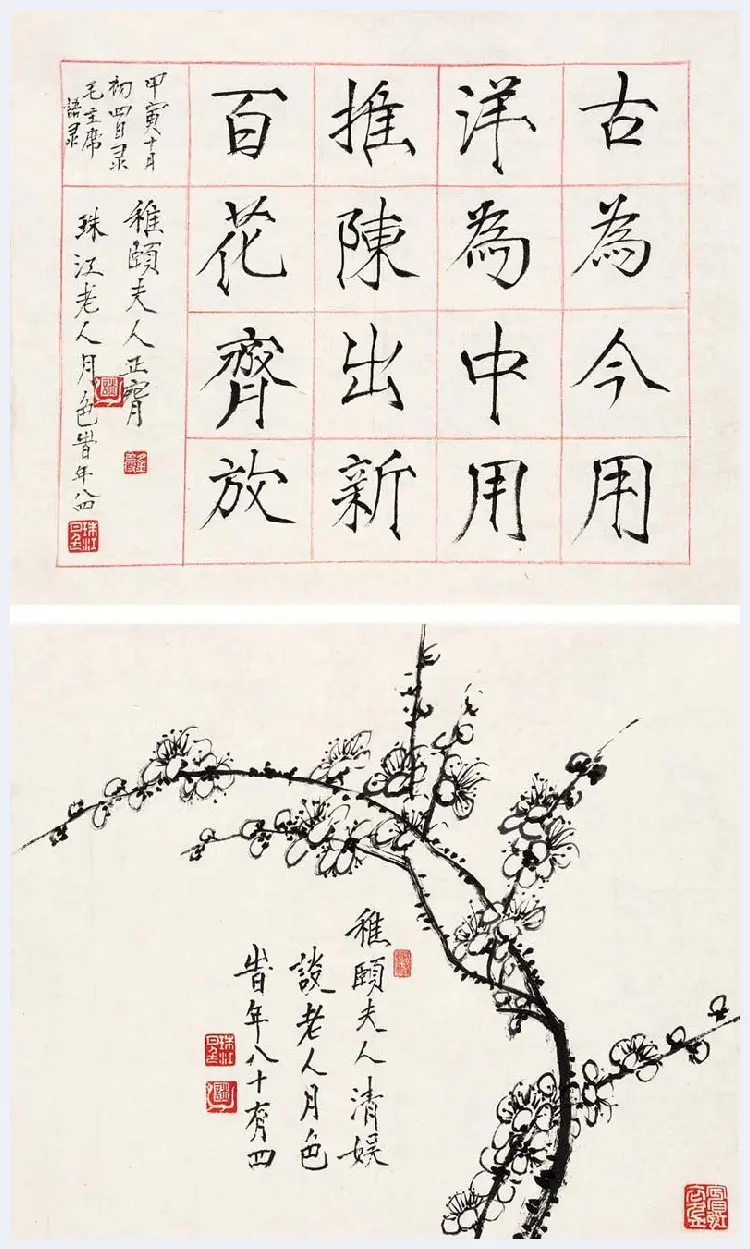 古為今用
洋為中用
推陳出新
百花齊放
甲寅十月
初四日录
毛主席
語录
稚頤夫人正腕
珠江老人月色時年八四
珠江月色
稚頤夫人清娱
談老人月色
時年八十有四
珠江月色